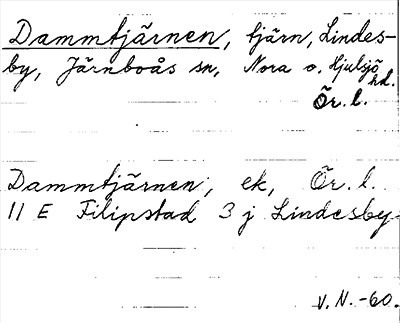 Dammtjärnen, tjärn, Lindes-
by, Järnboås sn, Nora o. Hjulsjö
hd.
Ör. l.
Dammtjärnen, ek, Ör. l.
11 E Filipstad 3 j Lindesby
V. N. -60.